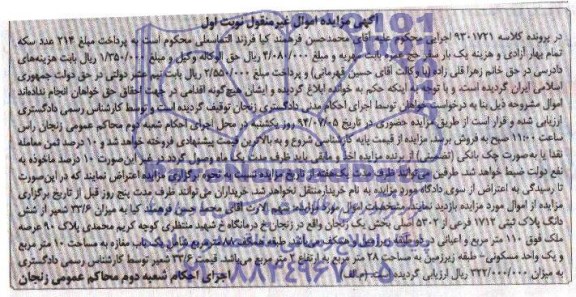 آگهی مزایده اموال غیرمنقول نوبت اول
در پرونده کلاسه ۹۳۰۱۷۲۱ اجرایی محکوم علیه آقای محمدحسن فرهمند کیا فرزند التفاتعلی محکوم است به پرداخت مبلغ ۲۱۴ عدد سکه
تمام بهار آزادی و هزینه یک بار سفر حج عمره بابت مهریه و مبلغ ۴/۰۸۰/۰۰۰ ریال حق الوکاله وکیل و مبلغ ۱/۳۵۰/۰۰۰ ریال بابت هزینه‌های
دادرسی در حق خانم زهرا قلی زاده (با وکالت آقای حسین قهرمانی) و پرداخت مبلغ ۲/۵۵۰/۰۰۰ ریال بابت نیم عشر دولتی در حق دولت جمهوری
اسلامی ایران گردیده است. و با توجه به اینکه حکم به خوانده ابلاغ گردیده و ایشان هیچ‌گونه اقدامی در جهت احقاق حق خواهان انجام نداده‌اند
اموال مشروحه ذیل بنا به درخواست خواهان توسط اجرای احکام مدنی دادگستری زنجان توقیف گردیده است و توسط کارشناس رسمی دادگستری
ارزیابی شده و قرار است از طریق مزایده حضوری در تاریخ ۹۴/۰۷/۰۵ روز یکشنبه در محل اجرای احکام شعبه دوم محاکم عمومی زنجان راس
ساعت ۱۱:۰۰ صبح به فروش برسد. مزایده از قیمت پایه کارشناسی شروع و به بالاترین قیمت پیشنهادی فروخته خواهد شد و ۱۰ درصد ثمن معامله
نقدا یا به‌صورت چک بانکی (تضمینی) از برنده مزایده اخذ و مابقی باید ظرف مدت یک ماه وصول گردد در غیر این صورت ۱۰ درصد ماخوذه به
نفع دولت ضبط خواهد شد. طرفین می‌توانند ظرف مدت یک هفته از تاریخ مزایده نسبت به نحوه برگزاری مزایده اعتراض نمایند که در این صورت
تا رسیدگی به اعتراض از سوی دادگاه مورد مزایده به نام خریدار منتقل نخواهد شد. خریداران می‌توانند ظرف مدت پنج روز قبل از تاریخ برگزاری
مزایده از اموال مورد مزایده بازدید نمایند. مشخصات اموال مورد مزایده سهم الارث آقای محمدحسن فرهمند کیا به میزان ۳۳/۶ شعیر از شش
دانگ پلاک ثبتی ۱۷۱۲ فرعی از ۵۰۳۰ اصلی بخش یک زنجان واقع در زنجان خ درمانگاه خ شهید منتظری کوچه کریم محمدی پلاک ۹۰ عرصه
ملک فوق ۱۱۰ متر مربع و اعیانی در دو طبقه زیرزمین و همکف می‌باشد. طبقه همکف ۸۸ متر مربع شامل یک باب مغازه به مساحت ۱۰ متر مربع
و یک واحد مسکونی- طبقه زیرزمین به مساحت ۲۸ متر مربع به ارتفاع ۲ متر مربع می‌باشد. قیمت ۳۳/۶ شعیر توسط کارشناس رسمی دادگستری
به میزان ۳۲۲/۰۰۰/۰۰۰ ریال ارزیابی گردیده است. (م.الف) اجرای احکام شعبه دوم محاکم عمومی زنجان